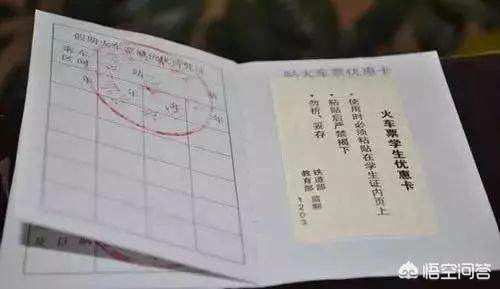 乘车
区间
站
年
贴火车票优惠卡
火车票学生优惠卡
· 使用时必须粘贴在学生证内页上
· 粘贴后严禁揭下
· 勿折、妥存
铁道部 监制
教育部 1203
悟空问答